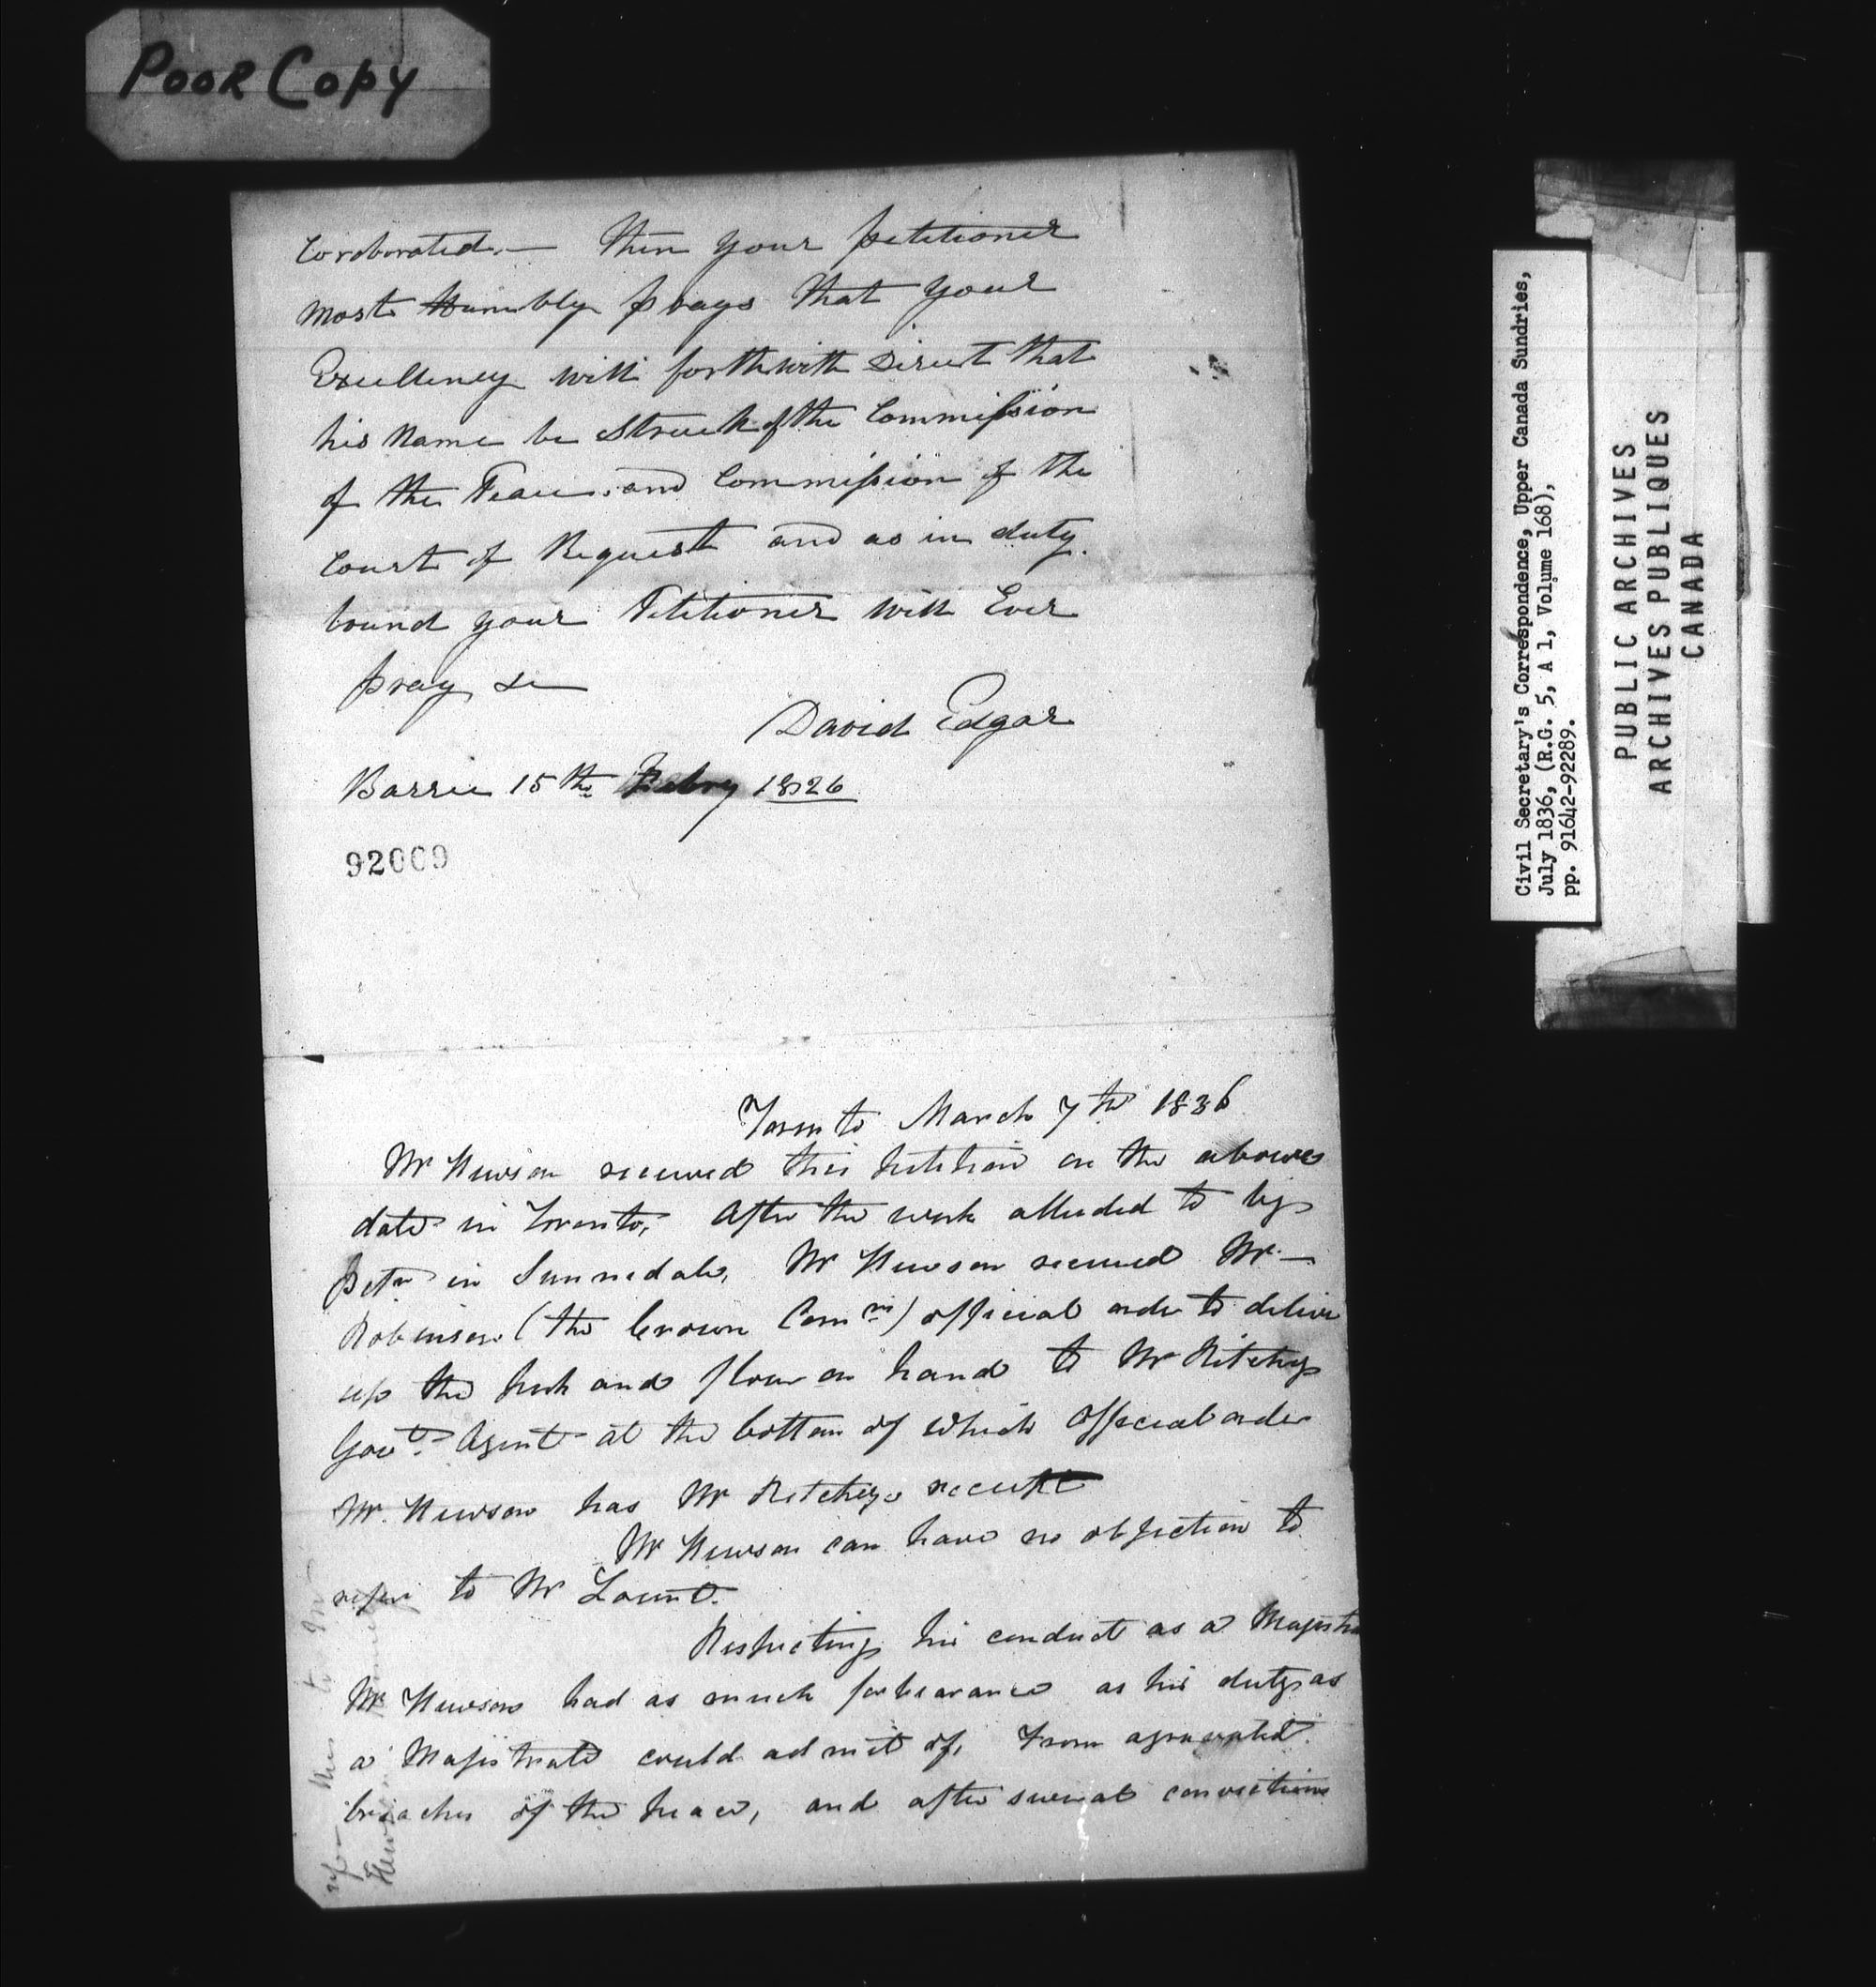 POOR COPY
Coroborated.— then your petitioner
most Humbly prays that your
Excellency will forthwith Direct that
his Name be Struck of the Commission
of the Peace and Commission of the
Court of Request and as in duty
bound your Petitioner will Ever
pray &c
David Edgar
Barrie 15th Febry 1826
92009
Toronto March 7th 1836
Mr Hewson received this petition on the above
date in Toronto, After the work alluded to by
Petr in Sunnidale, Mr Hewson received Mr—
Robinson (the Crown Comnr) official order to deliver
up the pork and flour on hand to Mr Ritchey
Govt. Agent at the bottom of which Official order
Mr. Hewson has Mr Ritcheys receipt
Mr Hewson can have no objection to
refer to Mr Lount.
Respecting his conduct as a Magistra
Mr Hewson had as much forbearance as his duty as
a Magistrate could admit of, From agravated
breaches of the peace, and after several convictions
refer this to Mr
Hewson
Civil Secretary's Correspondence, Upper Canada Sundries,
July 1836, (R.G. 5, A 1, Volume 168),
pp. 91642-92289.
PUBLIC ARCHIVES
ARCHIVES PUBLIQUES
CANADA